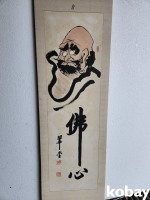 佛
心
kobay